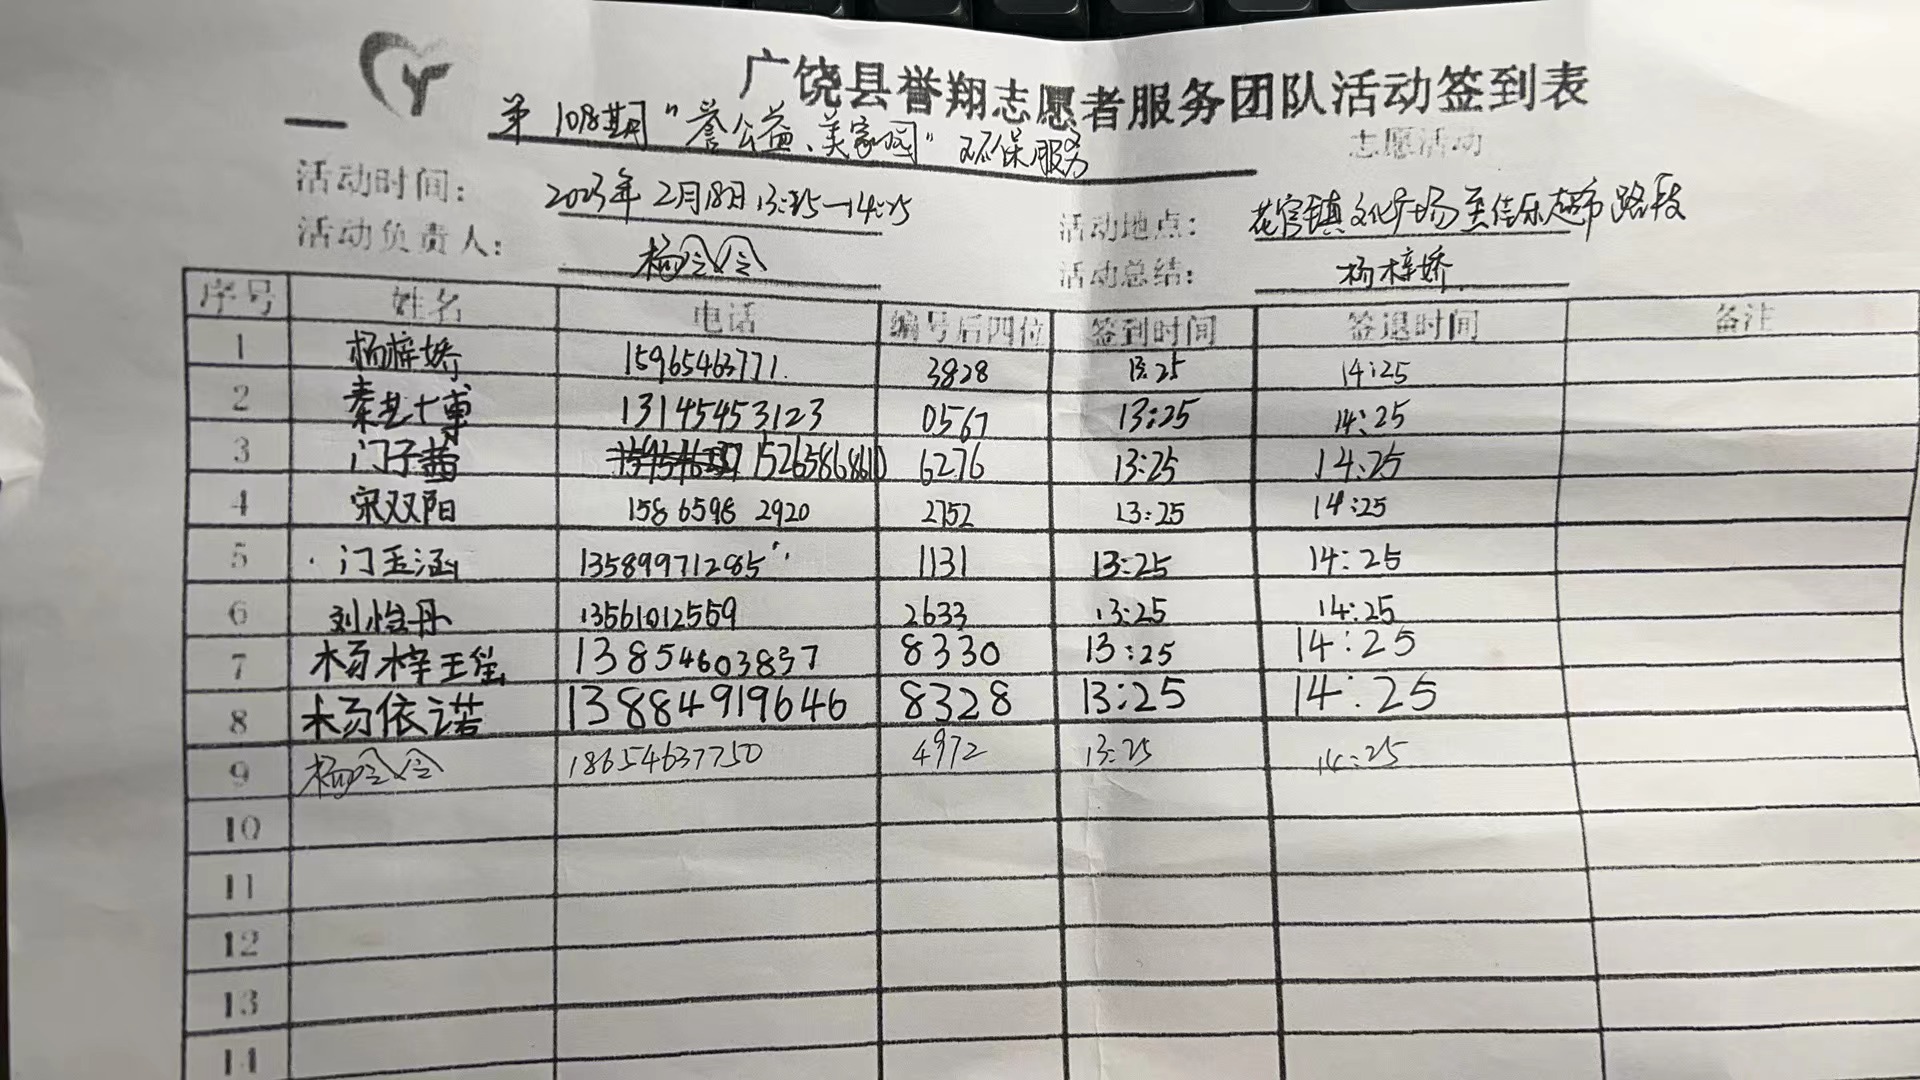 广饶县誉翔志愿者服务团队活动签到表
第108期"誉公益、美家园"环保服务 志愿活动
活动时间: 2023年2月18日13:25—14:25 活动地点: 花官镇文化广场至佳乐超市路段
活动负责人: 杨会会 活动总结: 杨梓娇
序号 姓名 电话 编号后四位 签到时间 签退时间 备注
1 杨梓娇 15965463771 3828 13:25 14:25
2 秦艺博 13145453123 0567 13:25 14:25
3 门子茜 15265868610 6276 13:25 14:25
4 宋双阳 158 6598 2920 2752 13:25 14:25
5 门玉涵 13589971285 1131 13:25 14:25
6 刘怡丹 13561012559 2633 13:25 14:25
7 杨梓 13854603837 8330 13:25 14:25
8 杨依诺 13884919646 8328 13:25 14:25
9 杨会会 18654637750 4972 13:25 14:25
10
11
12
13
14